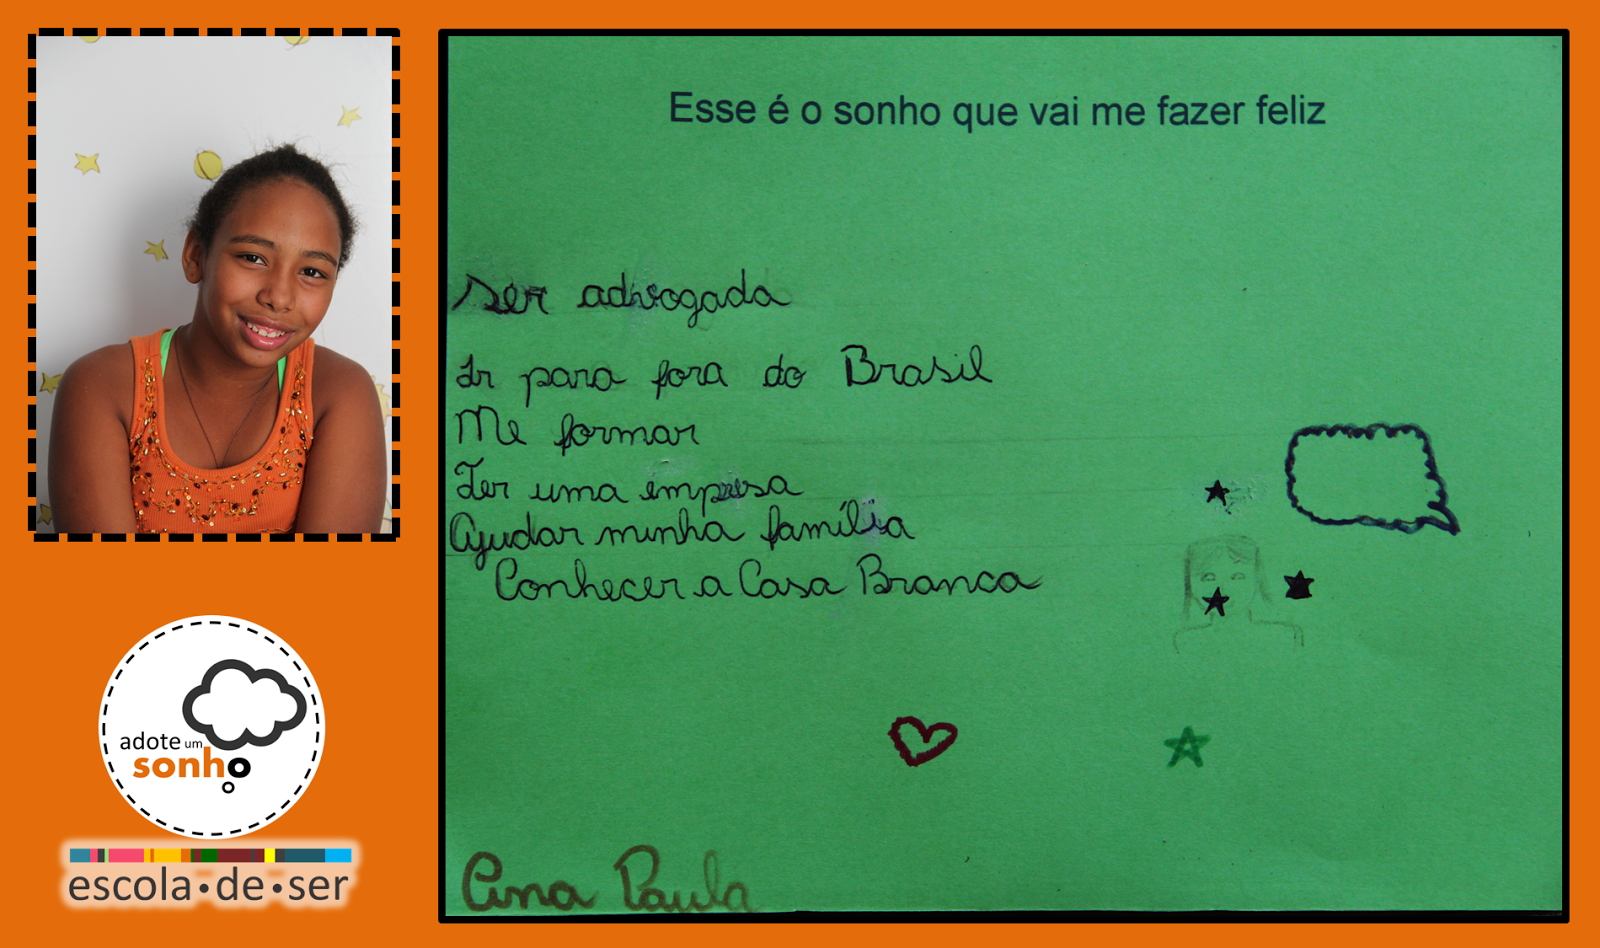 Esse é o sonho que vai me fazer feliz
ser advogada
Ir para fora do Brasil
Me formar
Ter uma empresa
Ajudar minha família
Conhecer a Casa Branca
Ana Paula
adote um
sonho
escola·de·ser